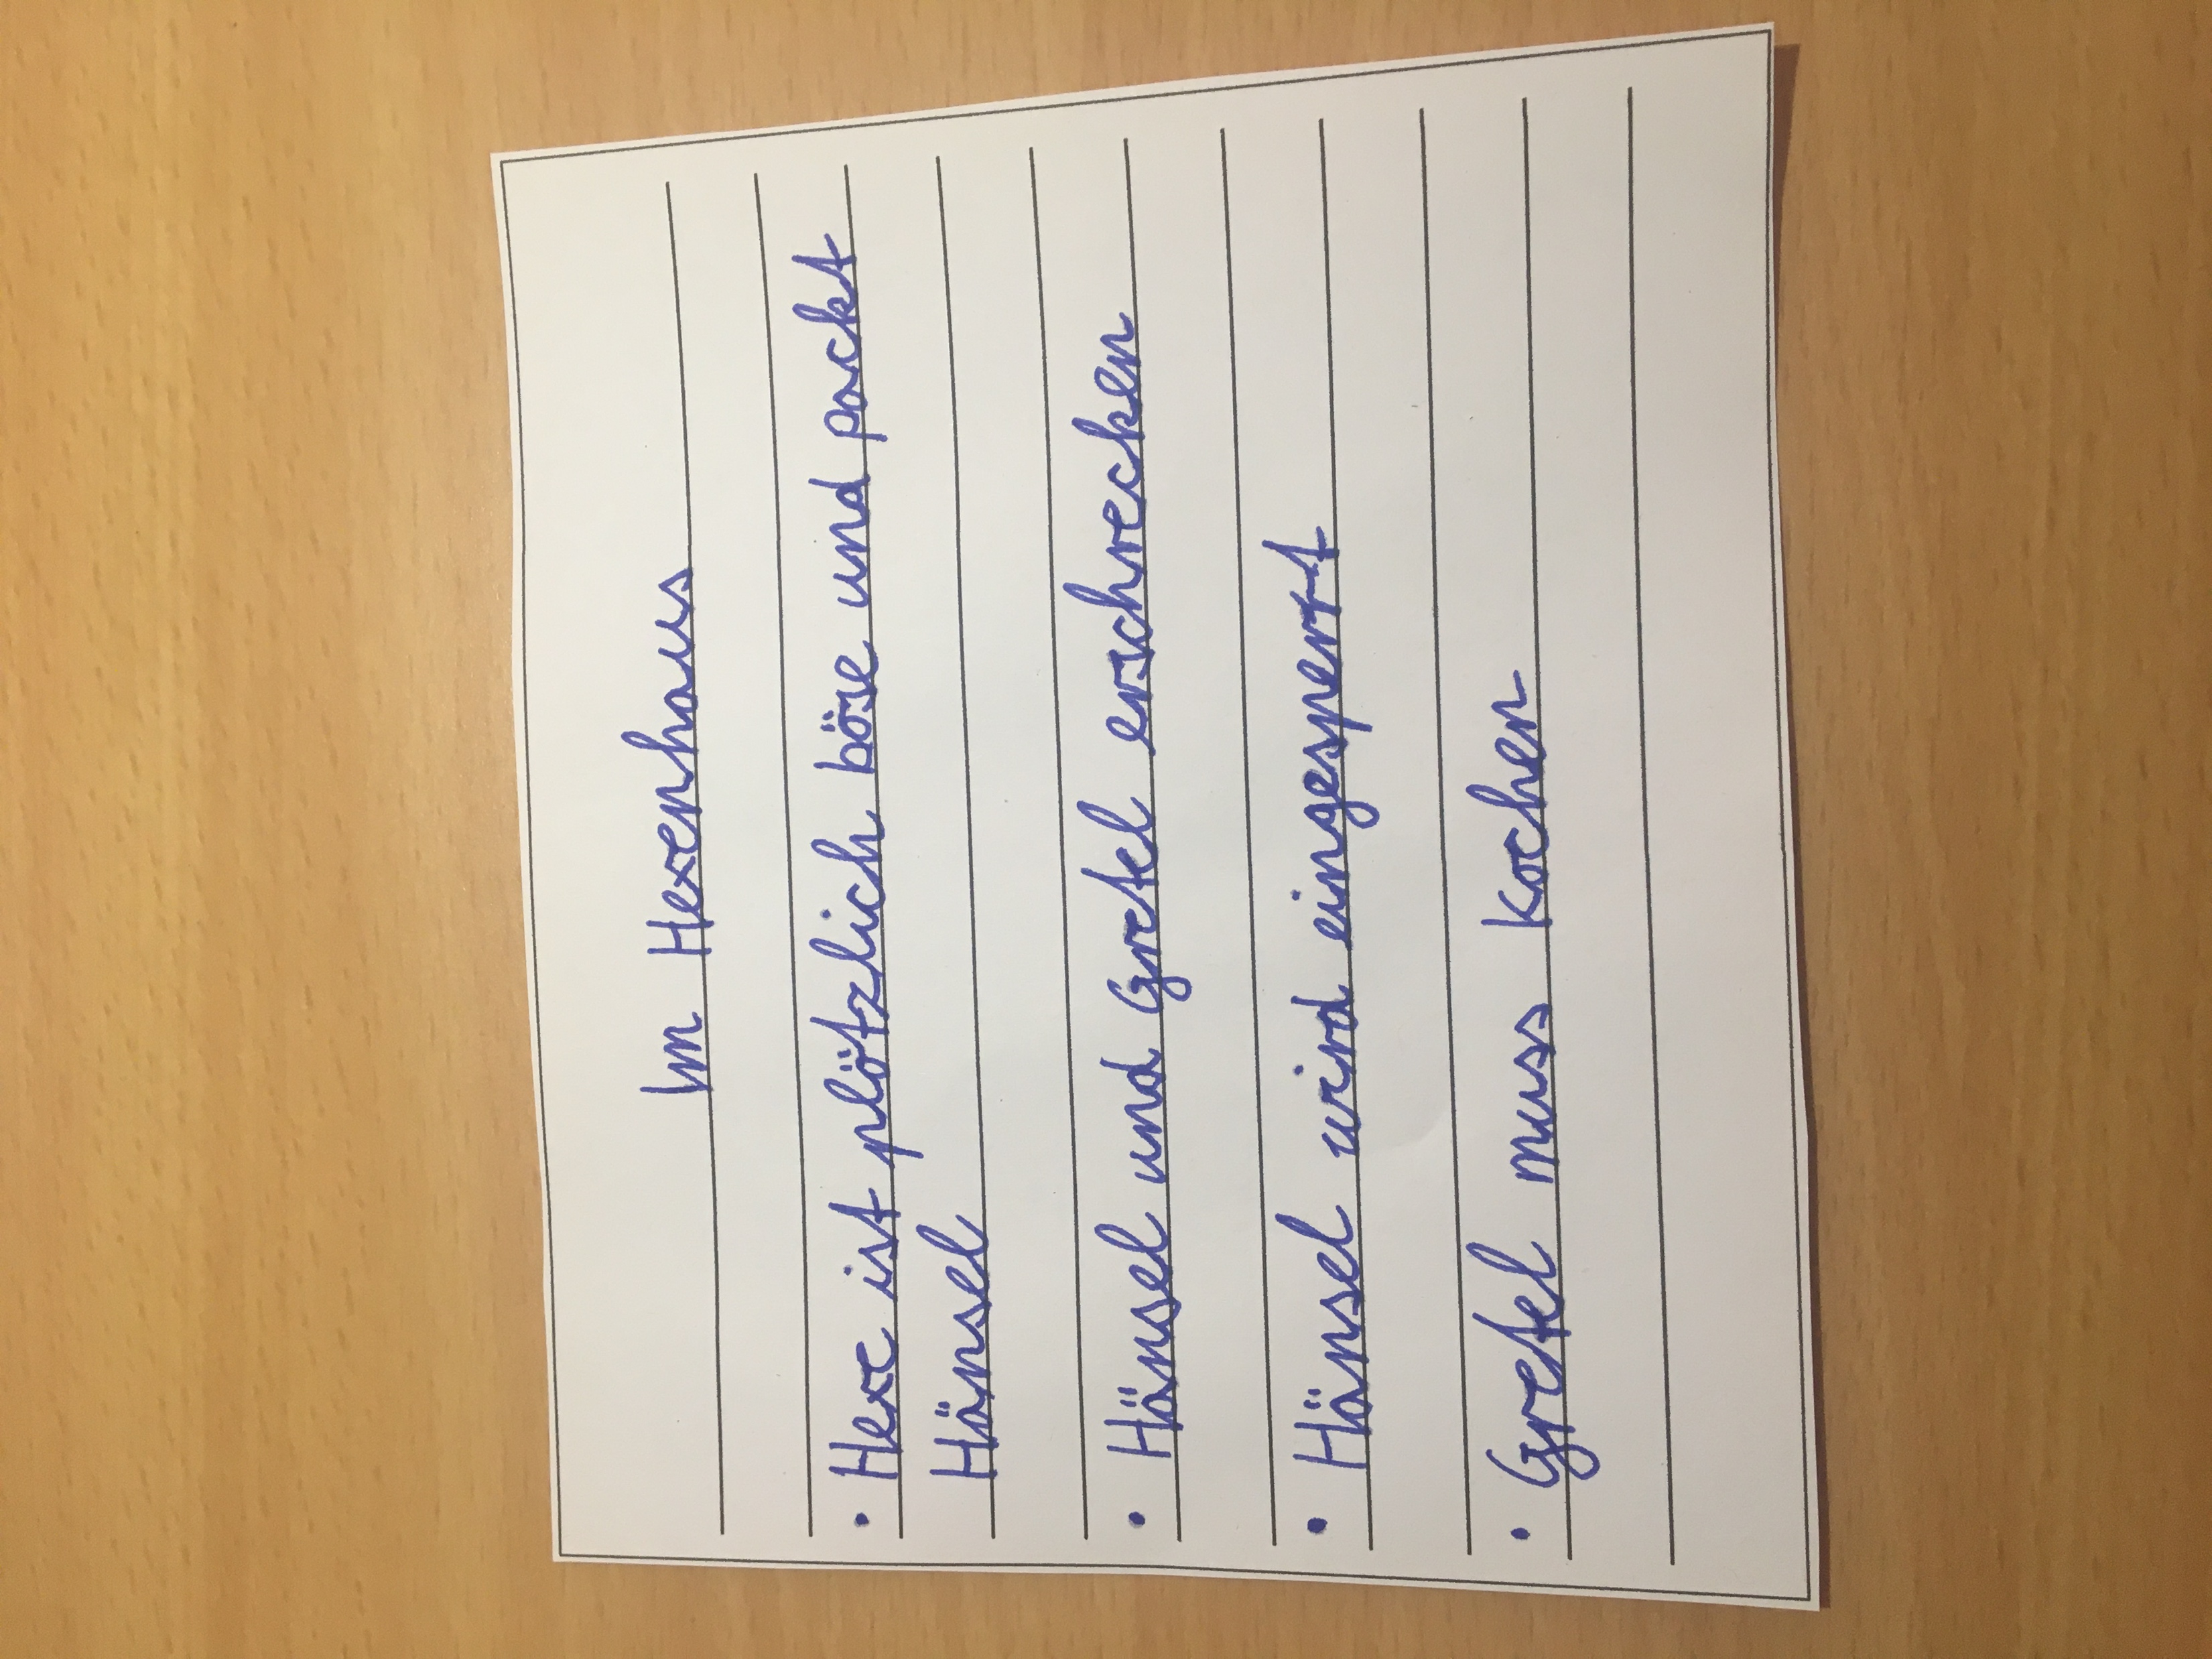 Im Hexenhaus
• Hexe ist plötzlich böse und packt
Hänsel
• Hänsel und Gretel erschrecken
• Hänsel wird eingesperrt
• Gretel muss kochen